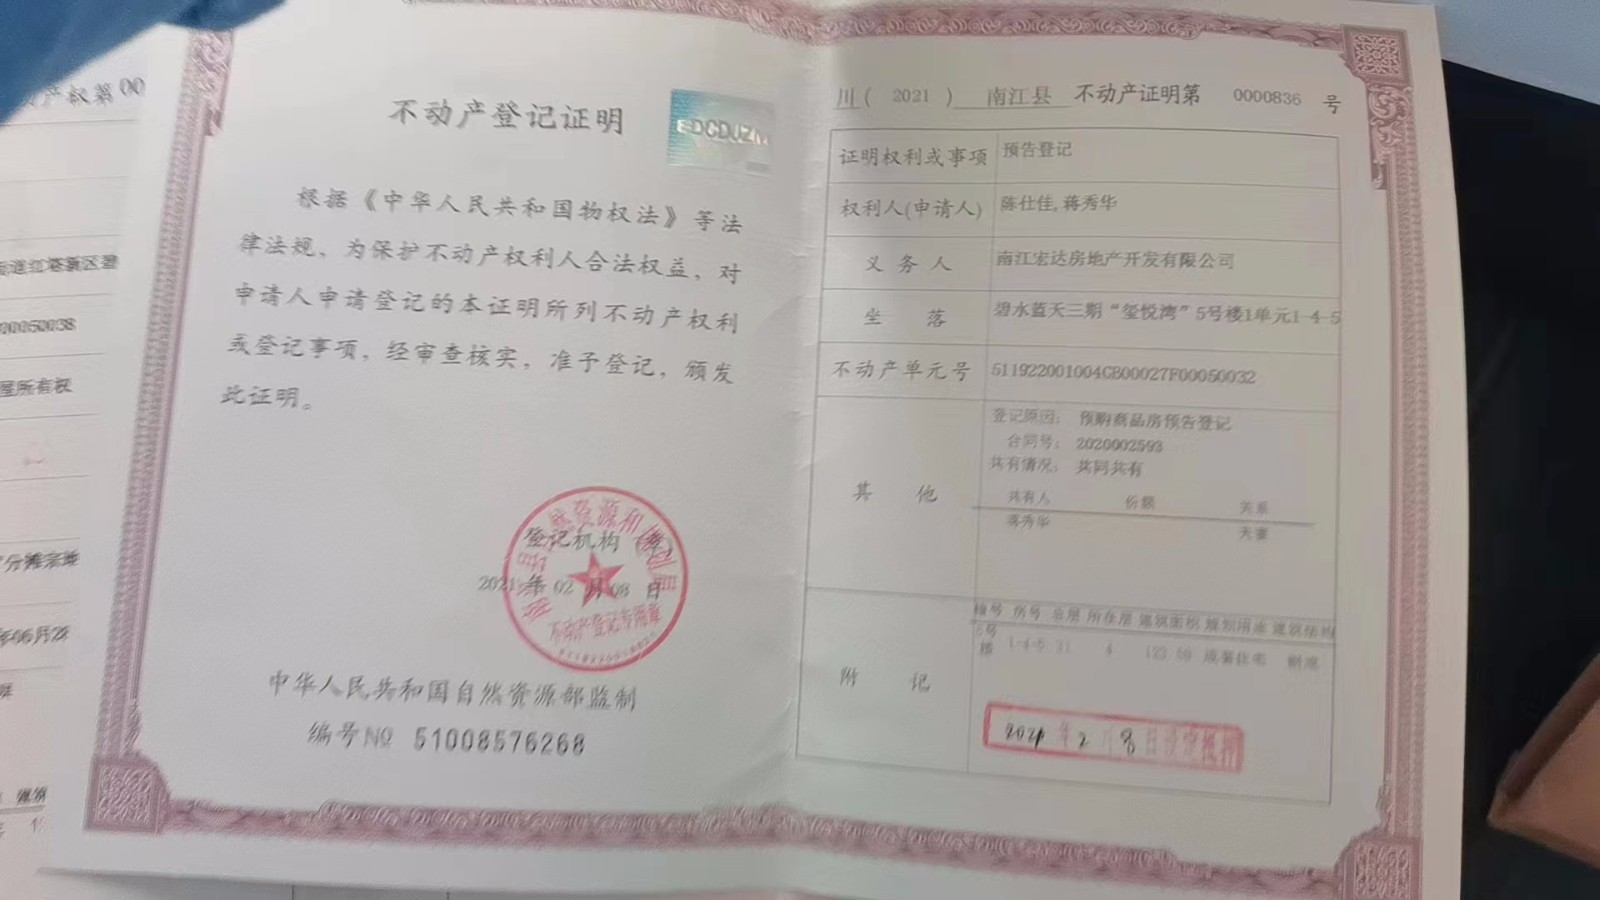 产权第00
街道红塔新区碧
00050038
屋所有权
分摊宗地
年06月28
不动产登记证明
根据《中华人民共和国物权法》等法
律法规，为保护不动产权利人合法权益，对
申请人申请登记的本证明所列不动产权利
或登记事项，经审查核实，准予登记，颁发
此证明。
登记机构（章）
2021年02月08日
不动产登记专用章
中华人民共和国自然资源部监制
编号NO 51008576268
川( 2021 ) 南江县 不动产证明第 0000836 号
证明权利或事项 预告登记
权利人(申请人) 陈仕佳,蒋秀华
义务人 南江宏达房地产开发有限公司
坐落 碧水蓝天三期“玺悦湾”5号楼1单元1-4-5
不动产单元号 511922001004GB00027F00050032
其他
登记原因：预购商品房预告登记
合同号：2020002593
共有情况：共同共有
共有人 份额 关系
蒋秀华 夫妻
附记
幢号 房号 总层 所在层 建筑面积 规划用途 建筑结构
5号楼 1-4-5 31 4 123.59 成套住宅
2021年2月8日